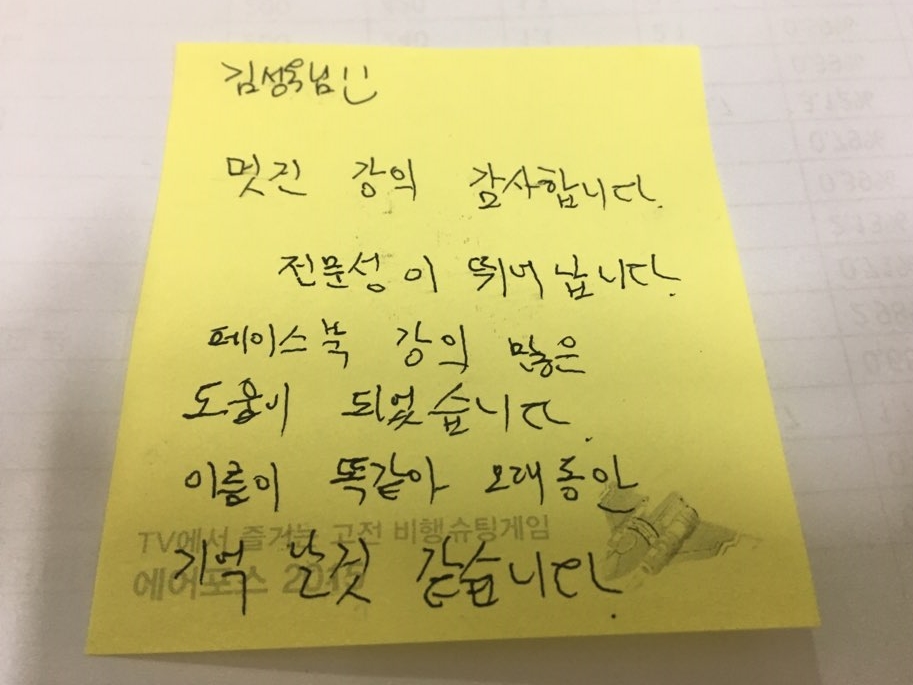 김성욱님!!
멋진 강의 감사합니다.
전문성이 뛰어납니다.
페이스북 강의 많은
도움이 되었습니다.
이름이 똑같아 오래동안
TV에서 즐기는 고전 비행슈팅게임
기억 날것 같습니다.
에어포스 2015